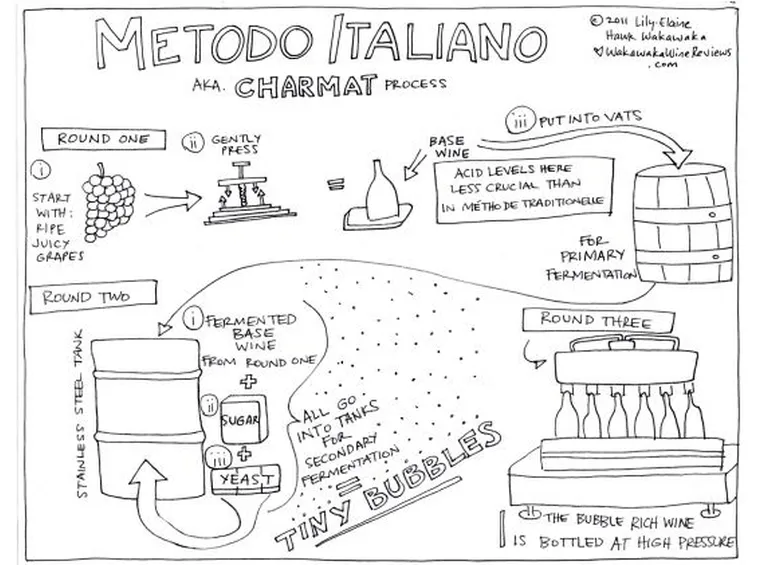 METODO ITALIANO
AKA. CHARMAT PROCESS
© 2011 Lily-Elaine
Hawk Wakawaka
WakawakaWineReviews
.com
ROUND ONE
i
START
WITH:
RIPE
JUICY
GRAPES
ii GENTLY
PRESS
=
BASE
WINE
ACID LEVELS HERE
LESS CRUCIAL THAN
IN MÉTHODE TRADITIONELLE
iii PUT INTO VATS
FOR
PRIMARY
FERMENTATION
ROUND TWO
STAINLESS STEEL TANK
i FERMENTED
BASE
WINE
FROM ROUND ONE
+
ii SUGAR
+
iii YEAST
ALL GO
INTO TANKS
FOR
SECONDARY
FERMENTATION
=
TINY BUBBLES
ROUND THREE
THE BUBBLE RICH WINE
IS BOTTLED AT HIGH PRESSURE